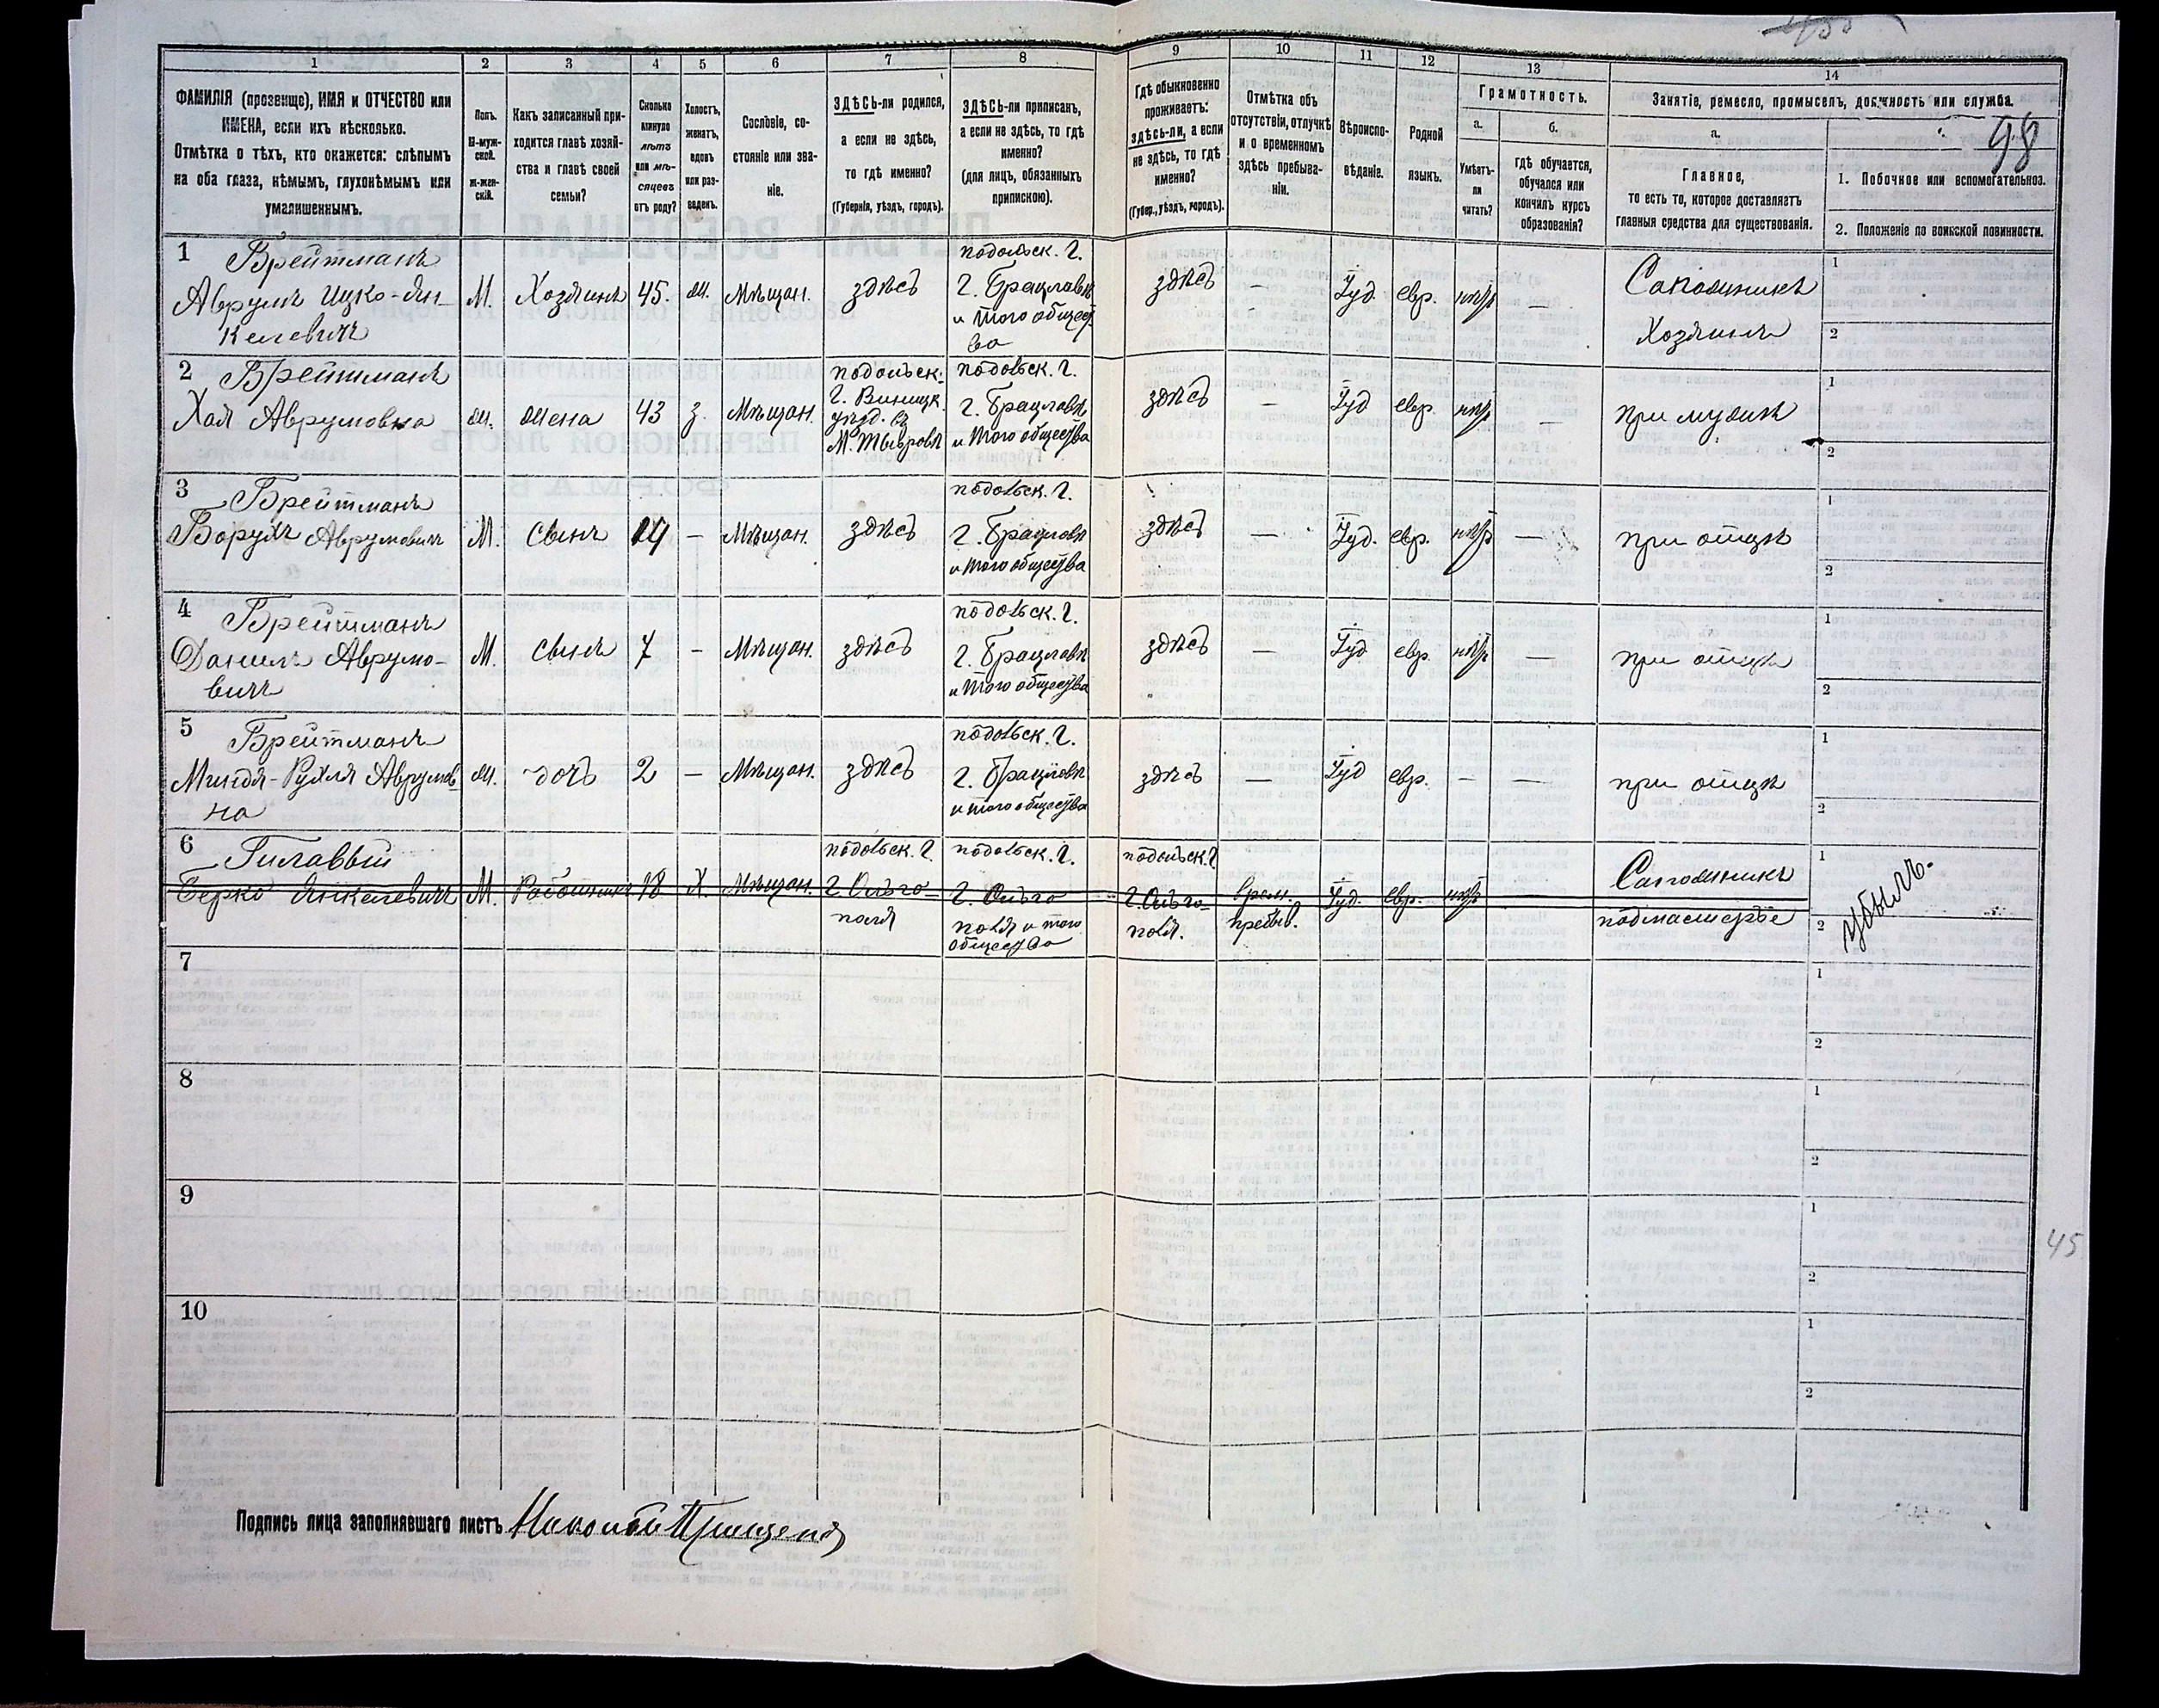 455
98
1 2 3 4 5 6 7 8 9 10 11 12 13 14
ФАМИЛІЯ (прозвище), ИМЯ и ОТЧЕСТВО или
ИМЕНА, если ихъ нѣсколько.
Отмѣтка о тѣхъ, кто окажется: слѣпымъ
на оба глаза, нѣмымъ, глухонѣмымъ или
умалишеннымъ.
Полъ.
М-муж-
ской.
ж-жен-
скій.
Какъ записанный при-
ходится главѣ хозяй-
ства и главѣ своей
семьи?
Сколько
минуло
лѣтъ
или мѣ-
сяцевъ
отъ роду?
Холостъ,
женатъ,
вдовъ
или раз-
веденъ.
Сословіе, со-
стояніе или зва-
ніе.
ЗДѢСЬ-ли родился,
а если не здѣсь,
то гдѣ именно?
(Губернія, уѣздъ, городъ).
ЗДѢСЬ-ли приписанъ,
а если не здѣсь, то гдѣ
именно?
(для лицъ, обязанныхъ
припискою).
Гдѣ обыкновенно
проживаетъ:
здѣсь-ли, а если
не здѣсь, то гдѣ
именно?
(Губер., уѣздъ, городъ).
Отмѣтка объ
отсутствіи, отлучкѣ
и о временномъ
здѣсь пребыва-
ніи.
Вѣроиспо-
вѣданіе.
Родной
языкъ.
Грамотность.
а.
Умѣетъ-
ли
читать?
б.
гдѣ обучается,
обучался или
кончилъ курсъ
образованія?
Занятіе, ремесло, промыселъ, должность или служба.
а.
Главное,
то есть то, которое доставляетъ
главныя средства для существованія.
1. Побочное или вспомогательное.
2. Положеніе по воинской повинности.
1 Брейтманъ
Аврумъ Ицко-Ян-
келевичъ
М. Хозяинъ 45. ж. Мѣщан. здѣсь
подольск. г.
г. Брацлавъ
и того общест
ва
здѣсь — Іуд. евр. нѣтъ —
Сапожникъ
Хозяинъ
1
2
2 Брейтманъ
Хая Аврумовна
ж. жена 43 з. Мѣщан.
подольск.
г. Виницк.
уѣзд. въ
М. Тывровѣ
подольск. г.
г. Брацлавъ
и того общества
здѣсь — Іуд евр. нѣтъ —
при мужѣ
1
2
3 Брейтманъ
Борухъ Аврумовичъ
М. сынъ 14 — Мѣщан. здѣсь
подольск. г.
г. Брацлавъ
и того общества
здѣсь — Іуд. евр. нѣтъ —
при отцѣ
1
2
4 Брейтманъ
Данилъ Аврумо-
вичъ
М. сынъ 7 — Мѣщан. здѣсь
подольск. г.
г. Брацлавъ
и того общества
здѣсь — Іуд евр. нѣтъ —
при отцѣ
1
2
5 Брейтманъ
Миндя-Рухля Аврумов-
на
ж. дочь 2 — Мѣщан. здѣсь
подольск. г.
г. Брацлавъ
и того общества
здѣсь — Іуд евр. — —
при отцѣ
1
2
6
Берко Янкелевичъ
М. Работникъ 18 Х. Мѣщан.
подольск. г.
г. Ольго-
поля
подольск. г.
г. Ольго
поля и того
общества
подольск. г
г. Ольго-
поля.
врем.
пребыв.
Іуд. евр. нѣтъ —
Сапожникъ
подмастерье
1
2
убылъ.
7
1
2
8
1
2
9
1
2
10
1
2
45
Подпись лица заполнявшаго листъ Николай